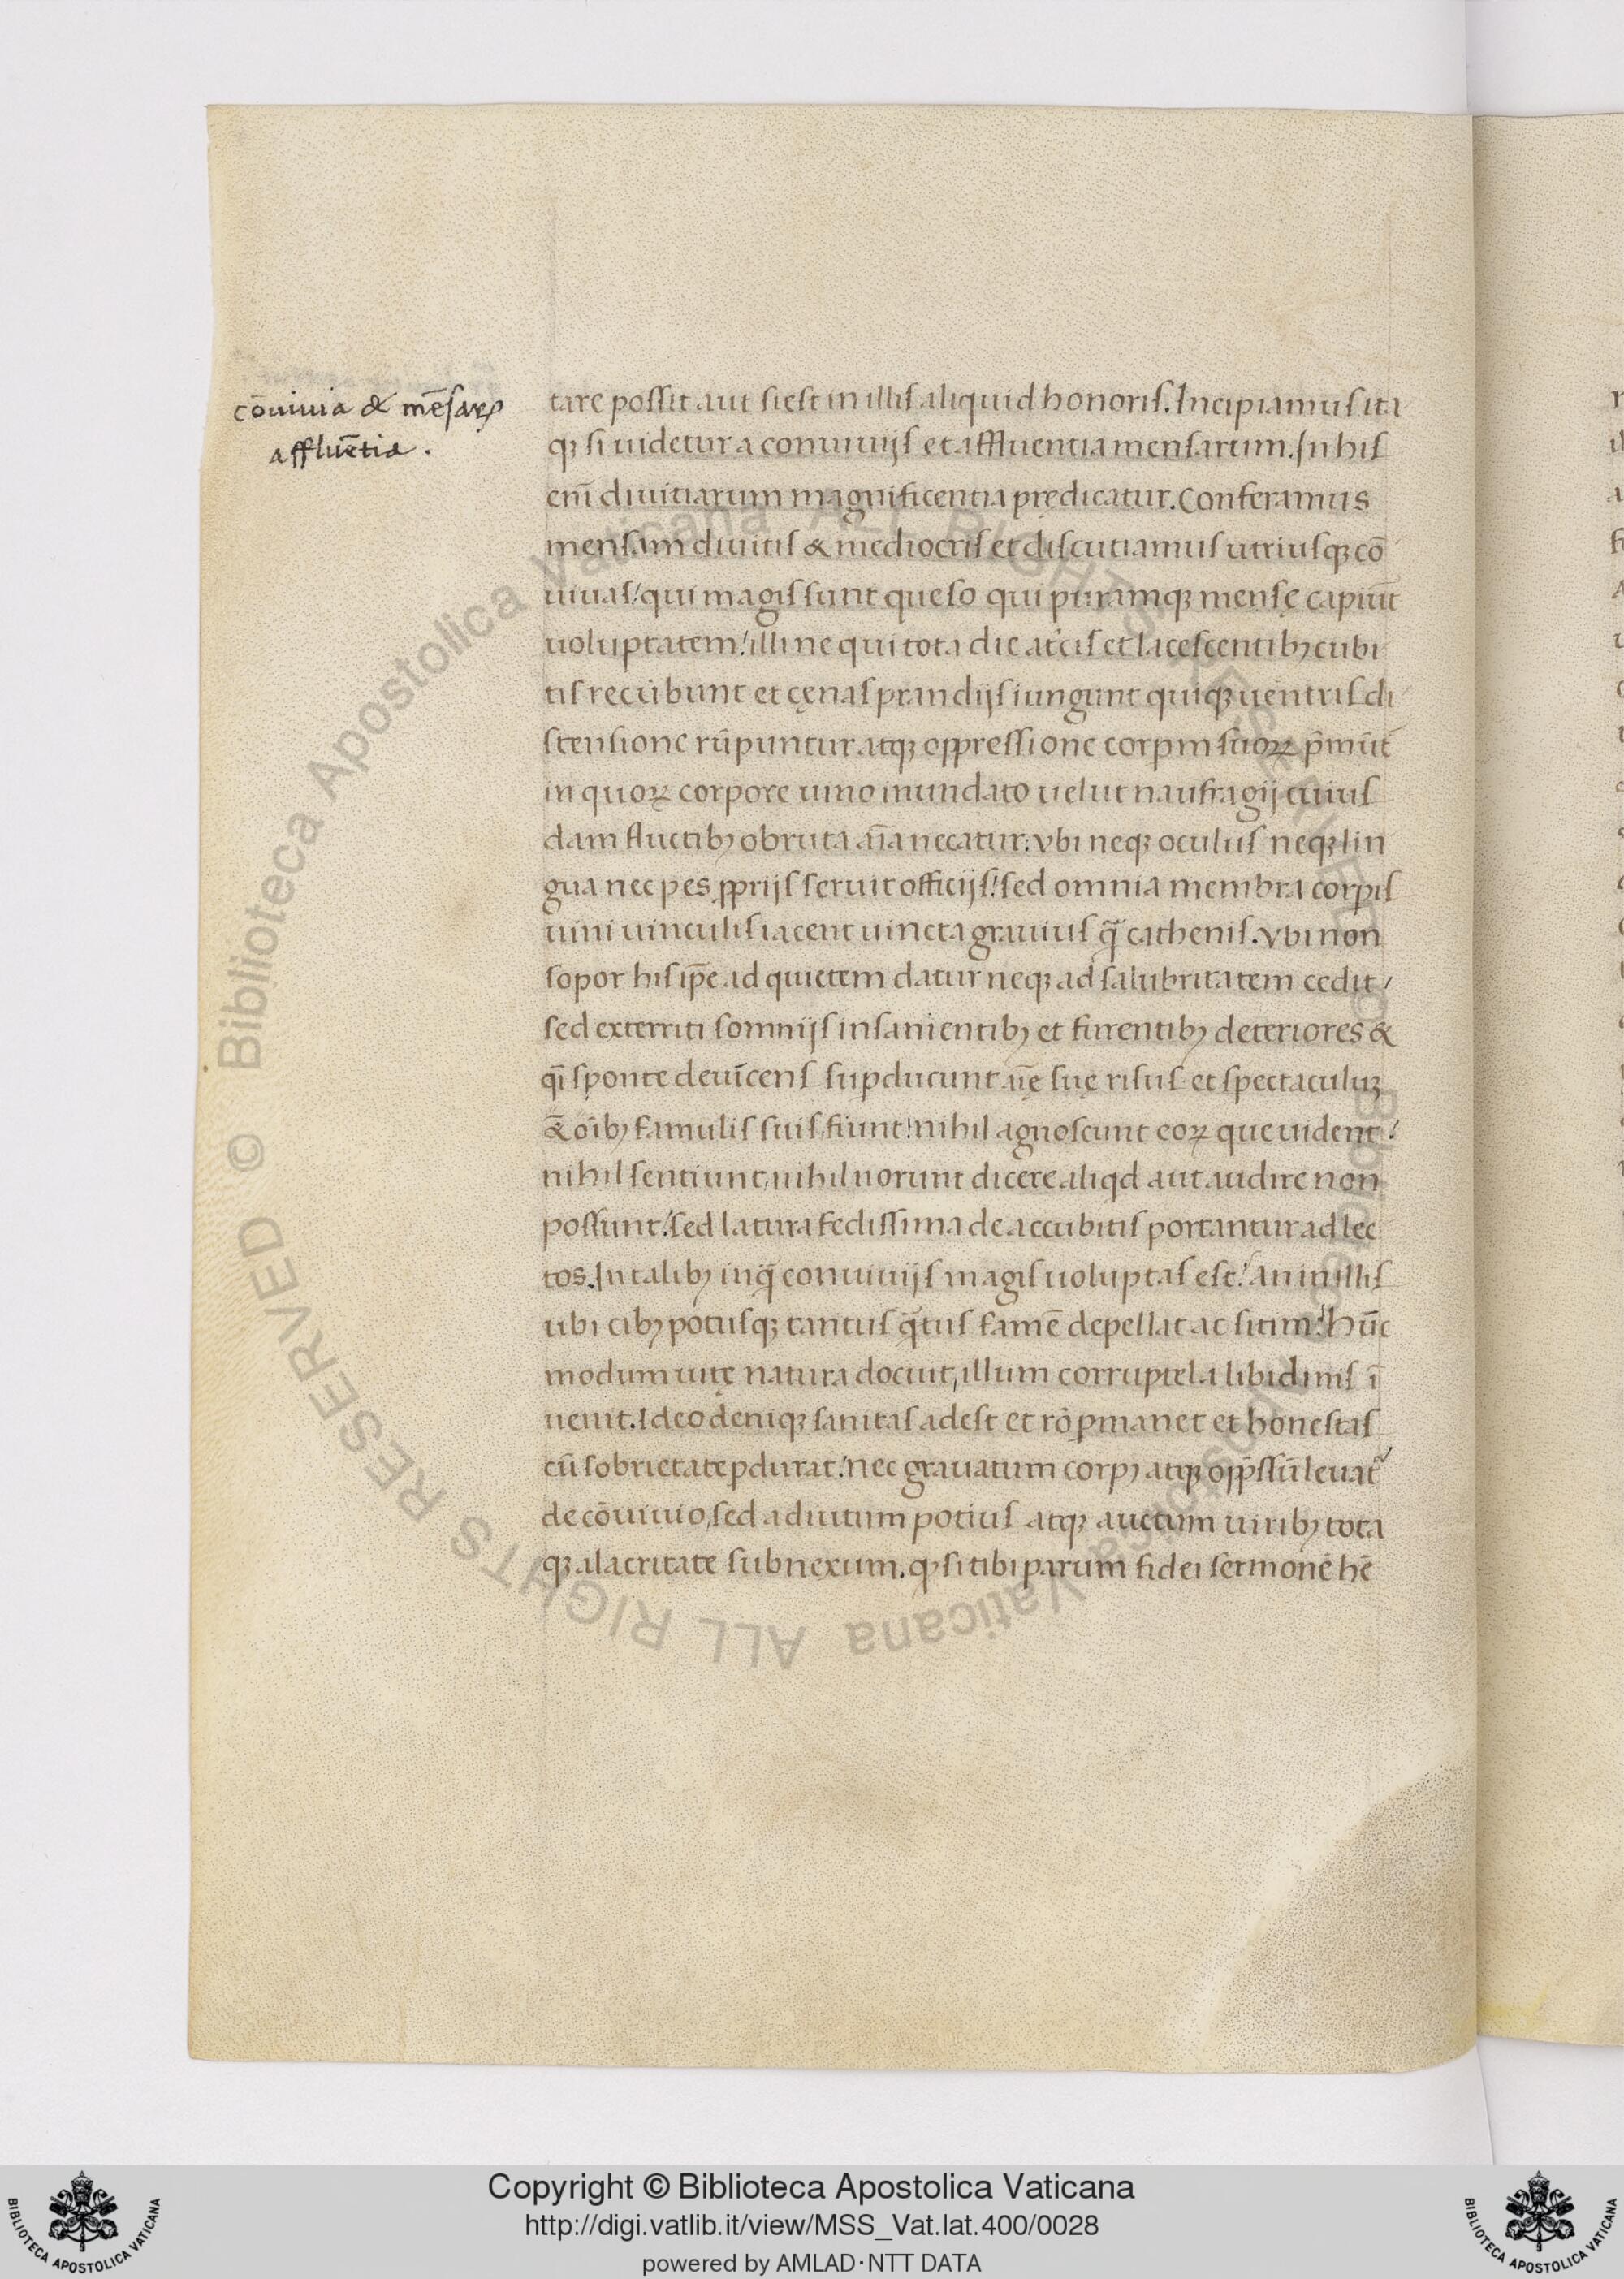 cōuiuia & mēsaꝝ
affluētia.
tare possit aut si est in illis aliquid honoris. Incipiamus ita
qꝫ si uidetur a conuiuijs et affluentia mensarum. In his
eni̅ diuitiarum magnificentia prędicatur. Conferamus
mensam diuitis & mediocris et discutiamus utriusqꝫ cō
uiuas/ qui magis sunt queso qui puramqꝫ mensę capiūt
uoluptatem! illi ne qui tota die et lacescentibꝫ cubi
tis recūbunt et cęnas prandijs iungunt quiqꝫ uentris di
stensione rūpuntur atqꝫ oppressione suoꝝ p̄mūt
in quoꝝ corpore uino inundato uelut naufragij cuius
dam fluctibꝫ obruta aīa necatur: vbi neqꝫ oculus neqꝫ lin
gua nec pes ꝓprijs seruit officijs! sed omnia membra corꝑis
uini uinculis iacent uincta grauius q̄ cathenis. vbi non
sopor his ip̄e ad quietem datur neqꝫ ad salubritatem cedit/
sed exterriti somnijs insanientibꝫ et furentibꝫ deteriores &
sponte ducunt suę risus et spectaculuꝫ
& oībꝫ famulis suis fiunt! nihil agnoscunt eoꝝ que uident!
nihil sentiunt, nihil norunt dicere aliqd aut audire non
possunt! sed latura fedissima de accubitis portantur ad lec
tos. In talibꝫ inq̄ conuiuijs magis uoluptas est! An in illis
ubi cibꝫ potusqꝫ tantus q̄tus famē depellat ac sitim! hūc
modum uitę natura docuit, illum corruptela libidinis ī
uenit. Ideo deniqꝫ sanitas adest et rō ꝑmanet et honestas
cū sobrietate ꝑdurat! nec grauatum corpꝫ atqꝫ opp̄ssū leuat᷑
de cōuiuio, sed adiutum potius atqꝫ auctum uiribꝫ tota
qꝫ alacritate subnexum. ꝙ si tibi parum fidei sermone hē
Copyright © Biblioteca Apostolica Vaticana
http://digi.vatlib.it/view/MSS_Vat.lat.400/0028
powered by AMLAD·NTT DATA
BIBLIOTECA APOSTOLICA VATICANA
BIBLIOTECA APOSTOLICA VATICANA
© Biblioteca Apostolica Vaticana ALL RIGHTS RESERVED © Biblioteca Apostolica Vaticana ALL RIGHTS RESERVED